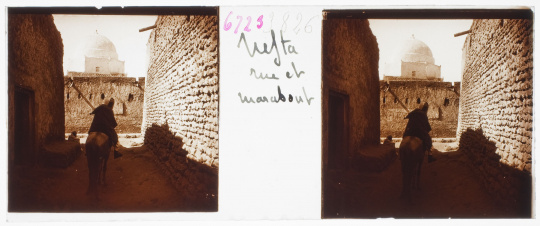 6723 1826
Nefta
rue et
marabout